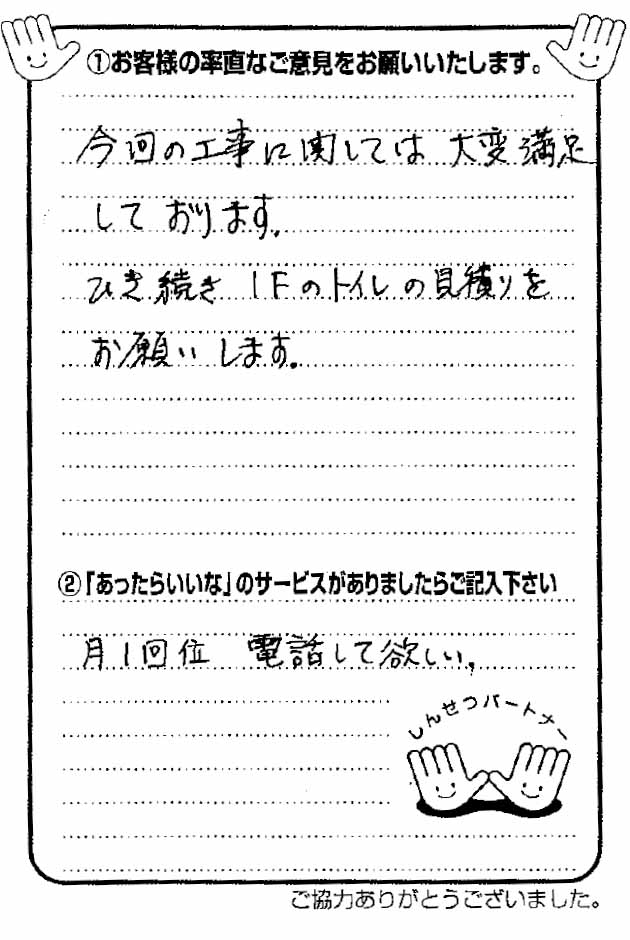 ①お客様の率直なご意見をお願いいたします。
今回の工事に関しては 大変満足
しております。
ひき続き 1Fのトイレの見積りを
お願いします。
②「あったらいいな」のサービスがありましたらご記入下さい
月1回位 電話して欲しい。
しんせつパートナー
ご協力ありがとうございました。